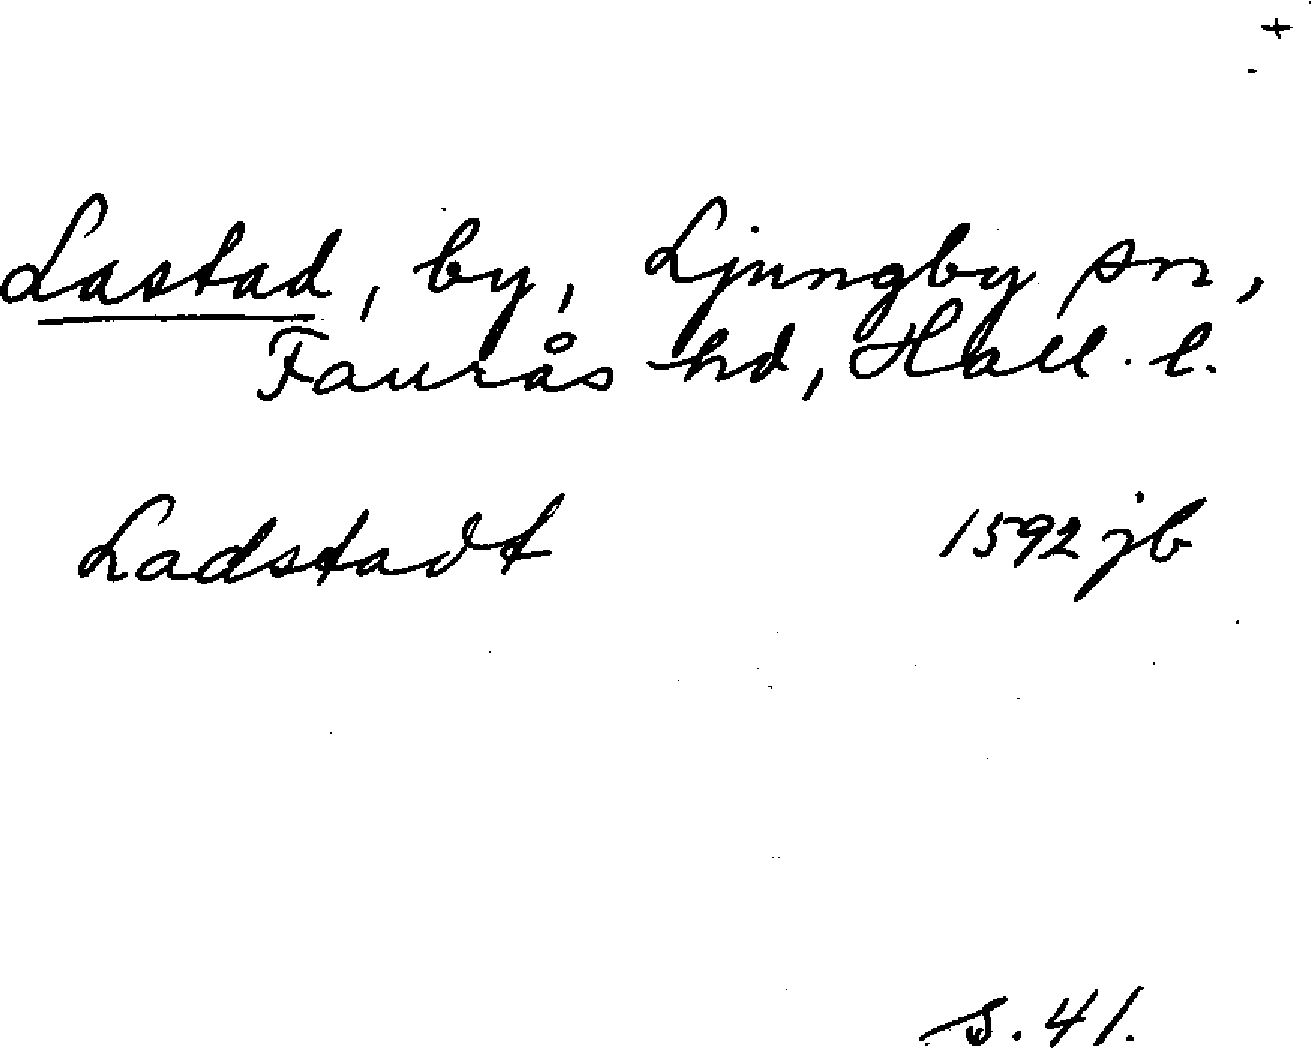 +
Lastad, by, Ljungby sn,
Faurås hd, Hall. l.
Ladstadt 1592 jb
s. 41.